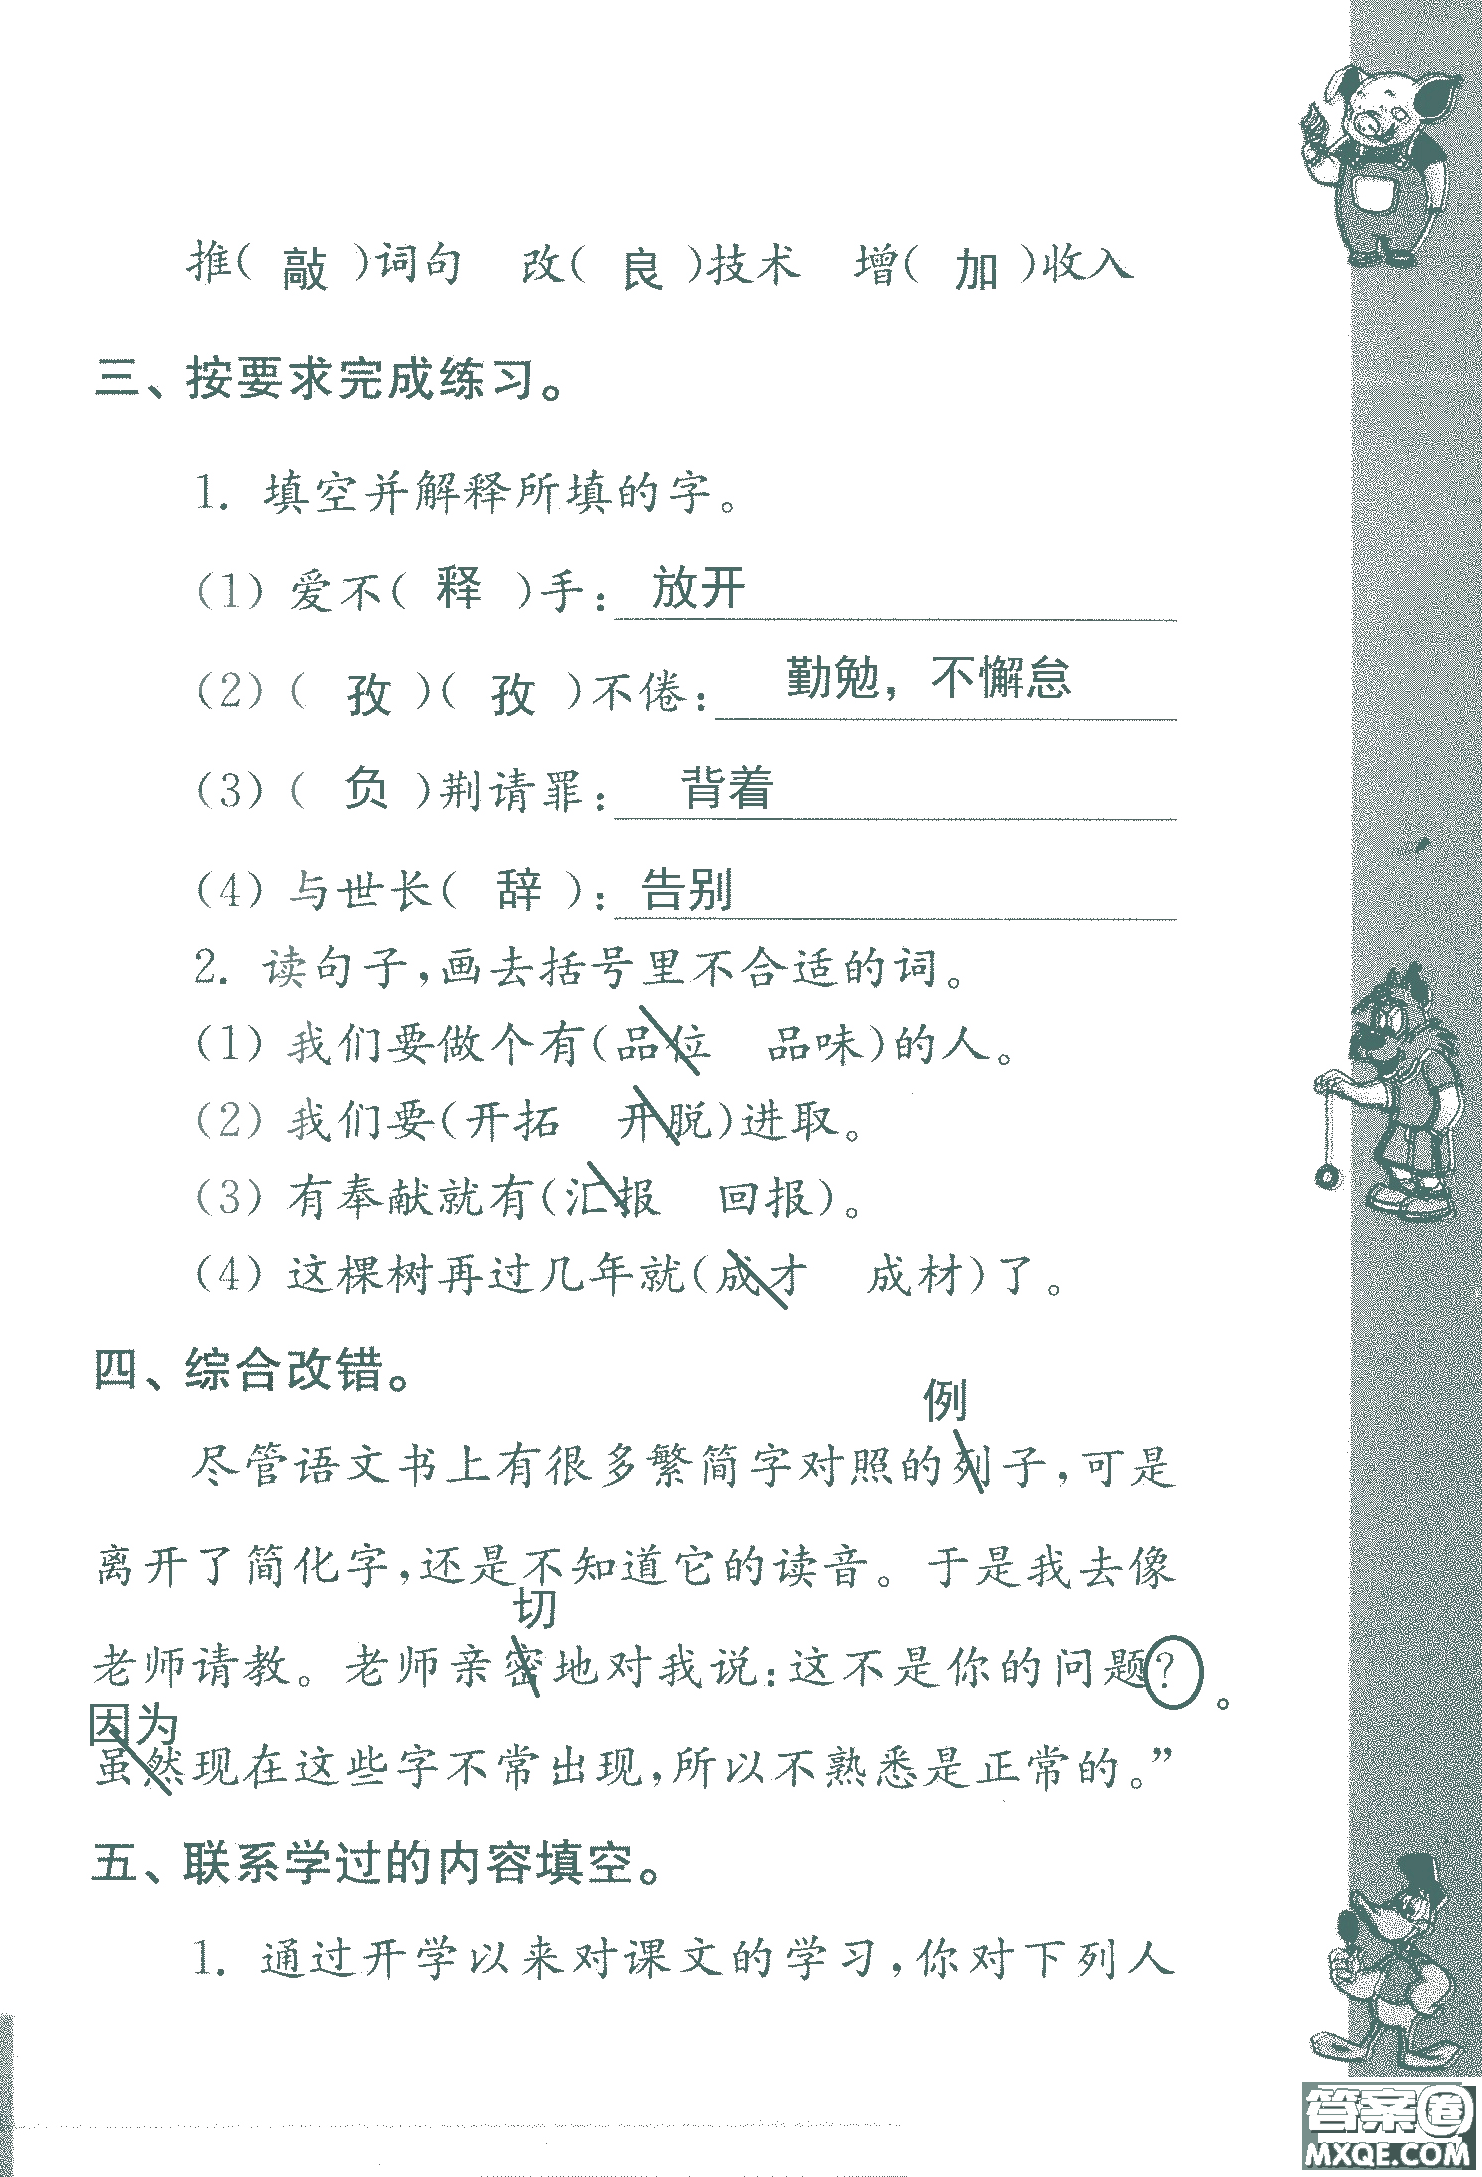 推( 敲 )词句 改( 良 )技术 增( 加 )收入
三、按要求完成练习。
1. 填空并解释所填的字。
(1) 爱不( 释 )手: 放开
(2) ( 孜 )( 孜 )不倦: 勤勉，不懈怠
(3) ( 负 )荆请罪: 背着
(4) 与世长( 辞 ): 告别
2. 读句子,画去括号里不合适的词。
(1) 我们要做个有(品位 品味)的人。
(2) 我们要(开拓 开脱)进取。
(3) 有奉献就有(汇报 回报)。
(4) 这棵树再过几年就(成才 成材)了。
四、综合改错。
例
尽管语文书上有很多繁简字对照的列子,可是
离开了简化字,还是不知道它的读音。于是我去像
切
老师请教。老师亲密地对我说:这不是你的问题? 。
因为
虽然现在这些字不常出现,所以不熟悉是正常的。”
五、联系学过的内容填空。
1. 通过开学以来对课文的学习,你对下列人
答案圈
MXQE.COM